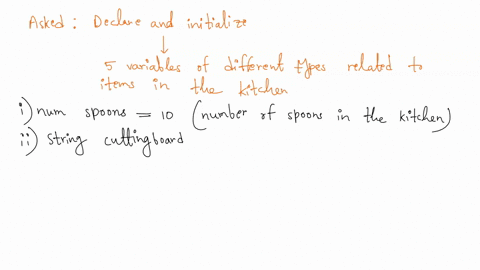 Asked : Declare and initialize
↓
5 variables of different types related to
items in the kitchen
i) num spoons = 10 (number of spoons in the kitchen)
ii) string cuttingboard